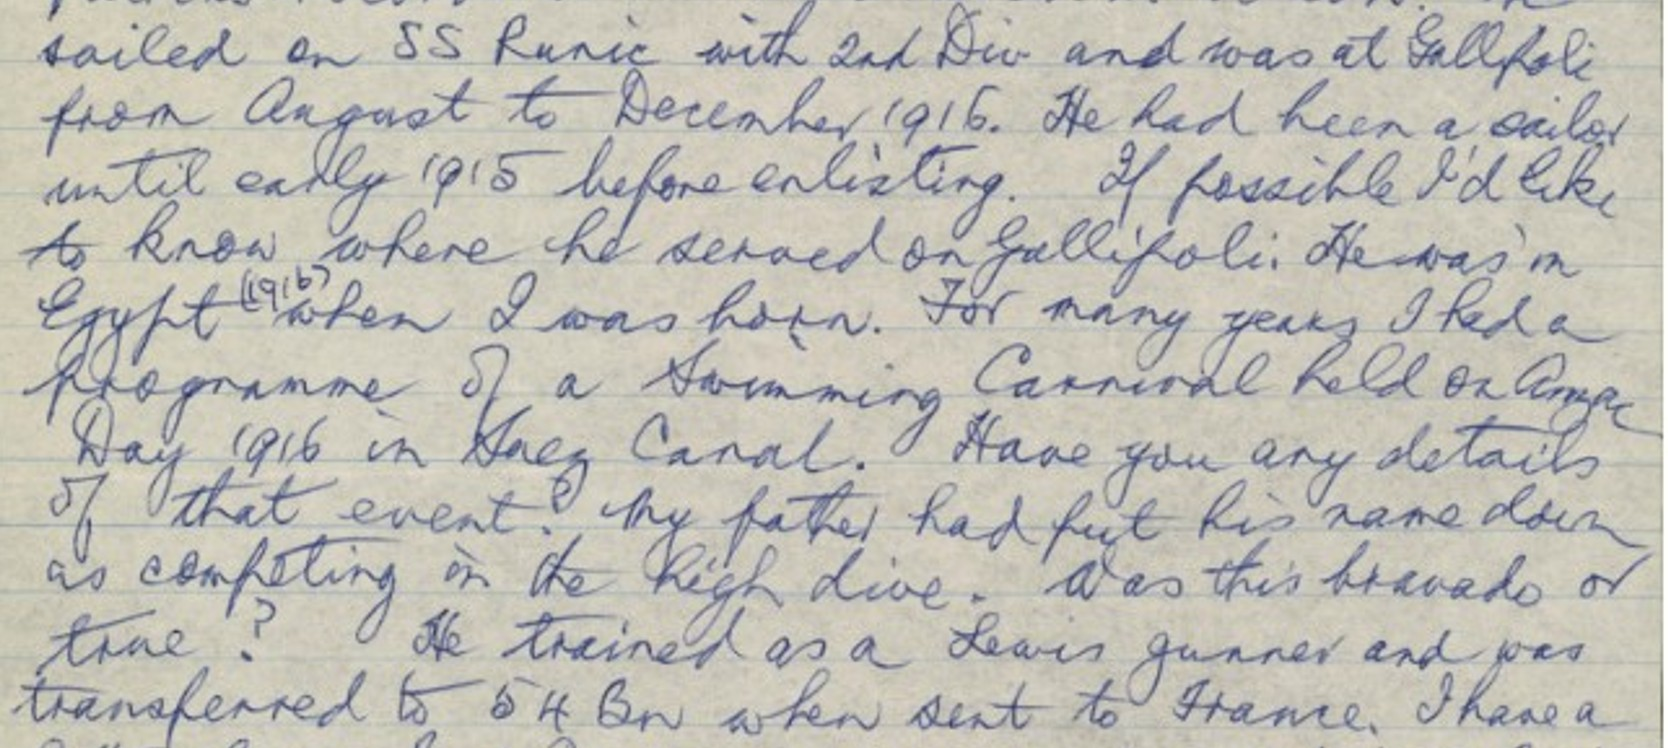 sailed on SS Runic with 2nd Div and was at Gallipoli
from August to December 1916. He had been a sailor
until early 1915 before enlisting. If possible I'd like
to know where he served on Gallipoli. He was in
Egypt (1916) when I was born. For many years I had a
programme of a Swimming Carnival held on Anzac
Day 1916 in Suez Canal. Have you any details
of that event? My father had put his name down
as competing in the high dive. Was this bravado or
true? He trained as a Lewis gunner and was
transferred to 54 Bn when sent to France. I have a